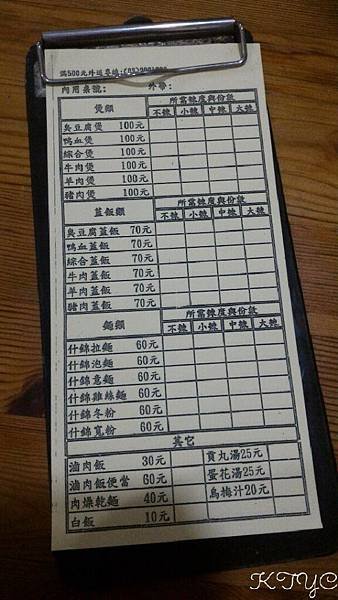 滿500元外送專線:(03)
內用桌號： 外帶：
煲類 所需辣度與份數
不辣 小辣 中辣 大辣
臭豆腐煲 100元
鴨血煲 100元
綜合煲 100元
牛肉煲 100元
羊肉煲 100元
豬肉煲 100元
蓋飯類 所需辣度與份數
不辣 小辣 中辣 大辣
臭豆腐蓋飯 70元
鴨血蓋飯 70元
綜合蓋飯 70元
牛肉蓋飯 70元
羊肉蓋飯 70元
豬肉蓋飯 70元
麵類 所需辣度與份數
不辣 小辣 中辣 大辣
什錦拉麵 60元
什錦泡麵 60元
什錦意麵 60元
什錦雞絲麵 60元
什錦冬粉 60元
什錦寬粉 60元
其它
滷肉飯 30元 貢丸湯25元
滷肉飯便當 60元 蛋花湯25元
肉燥乾麵 40元 烏梅汁20元
白飯 10元
KTYC